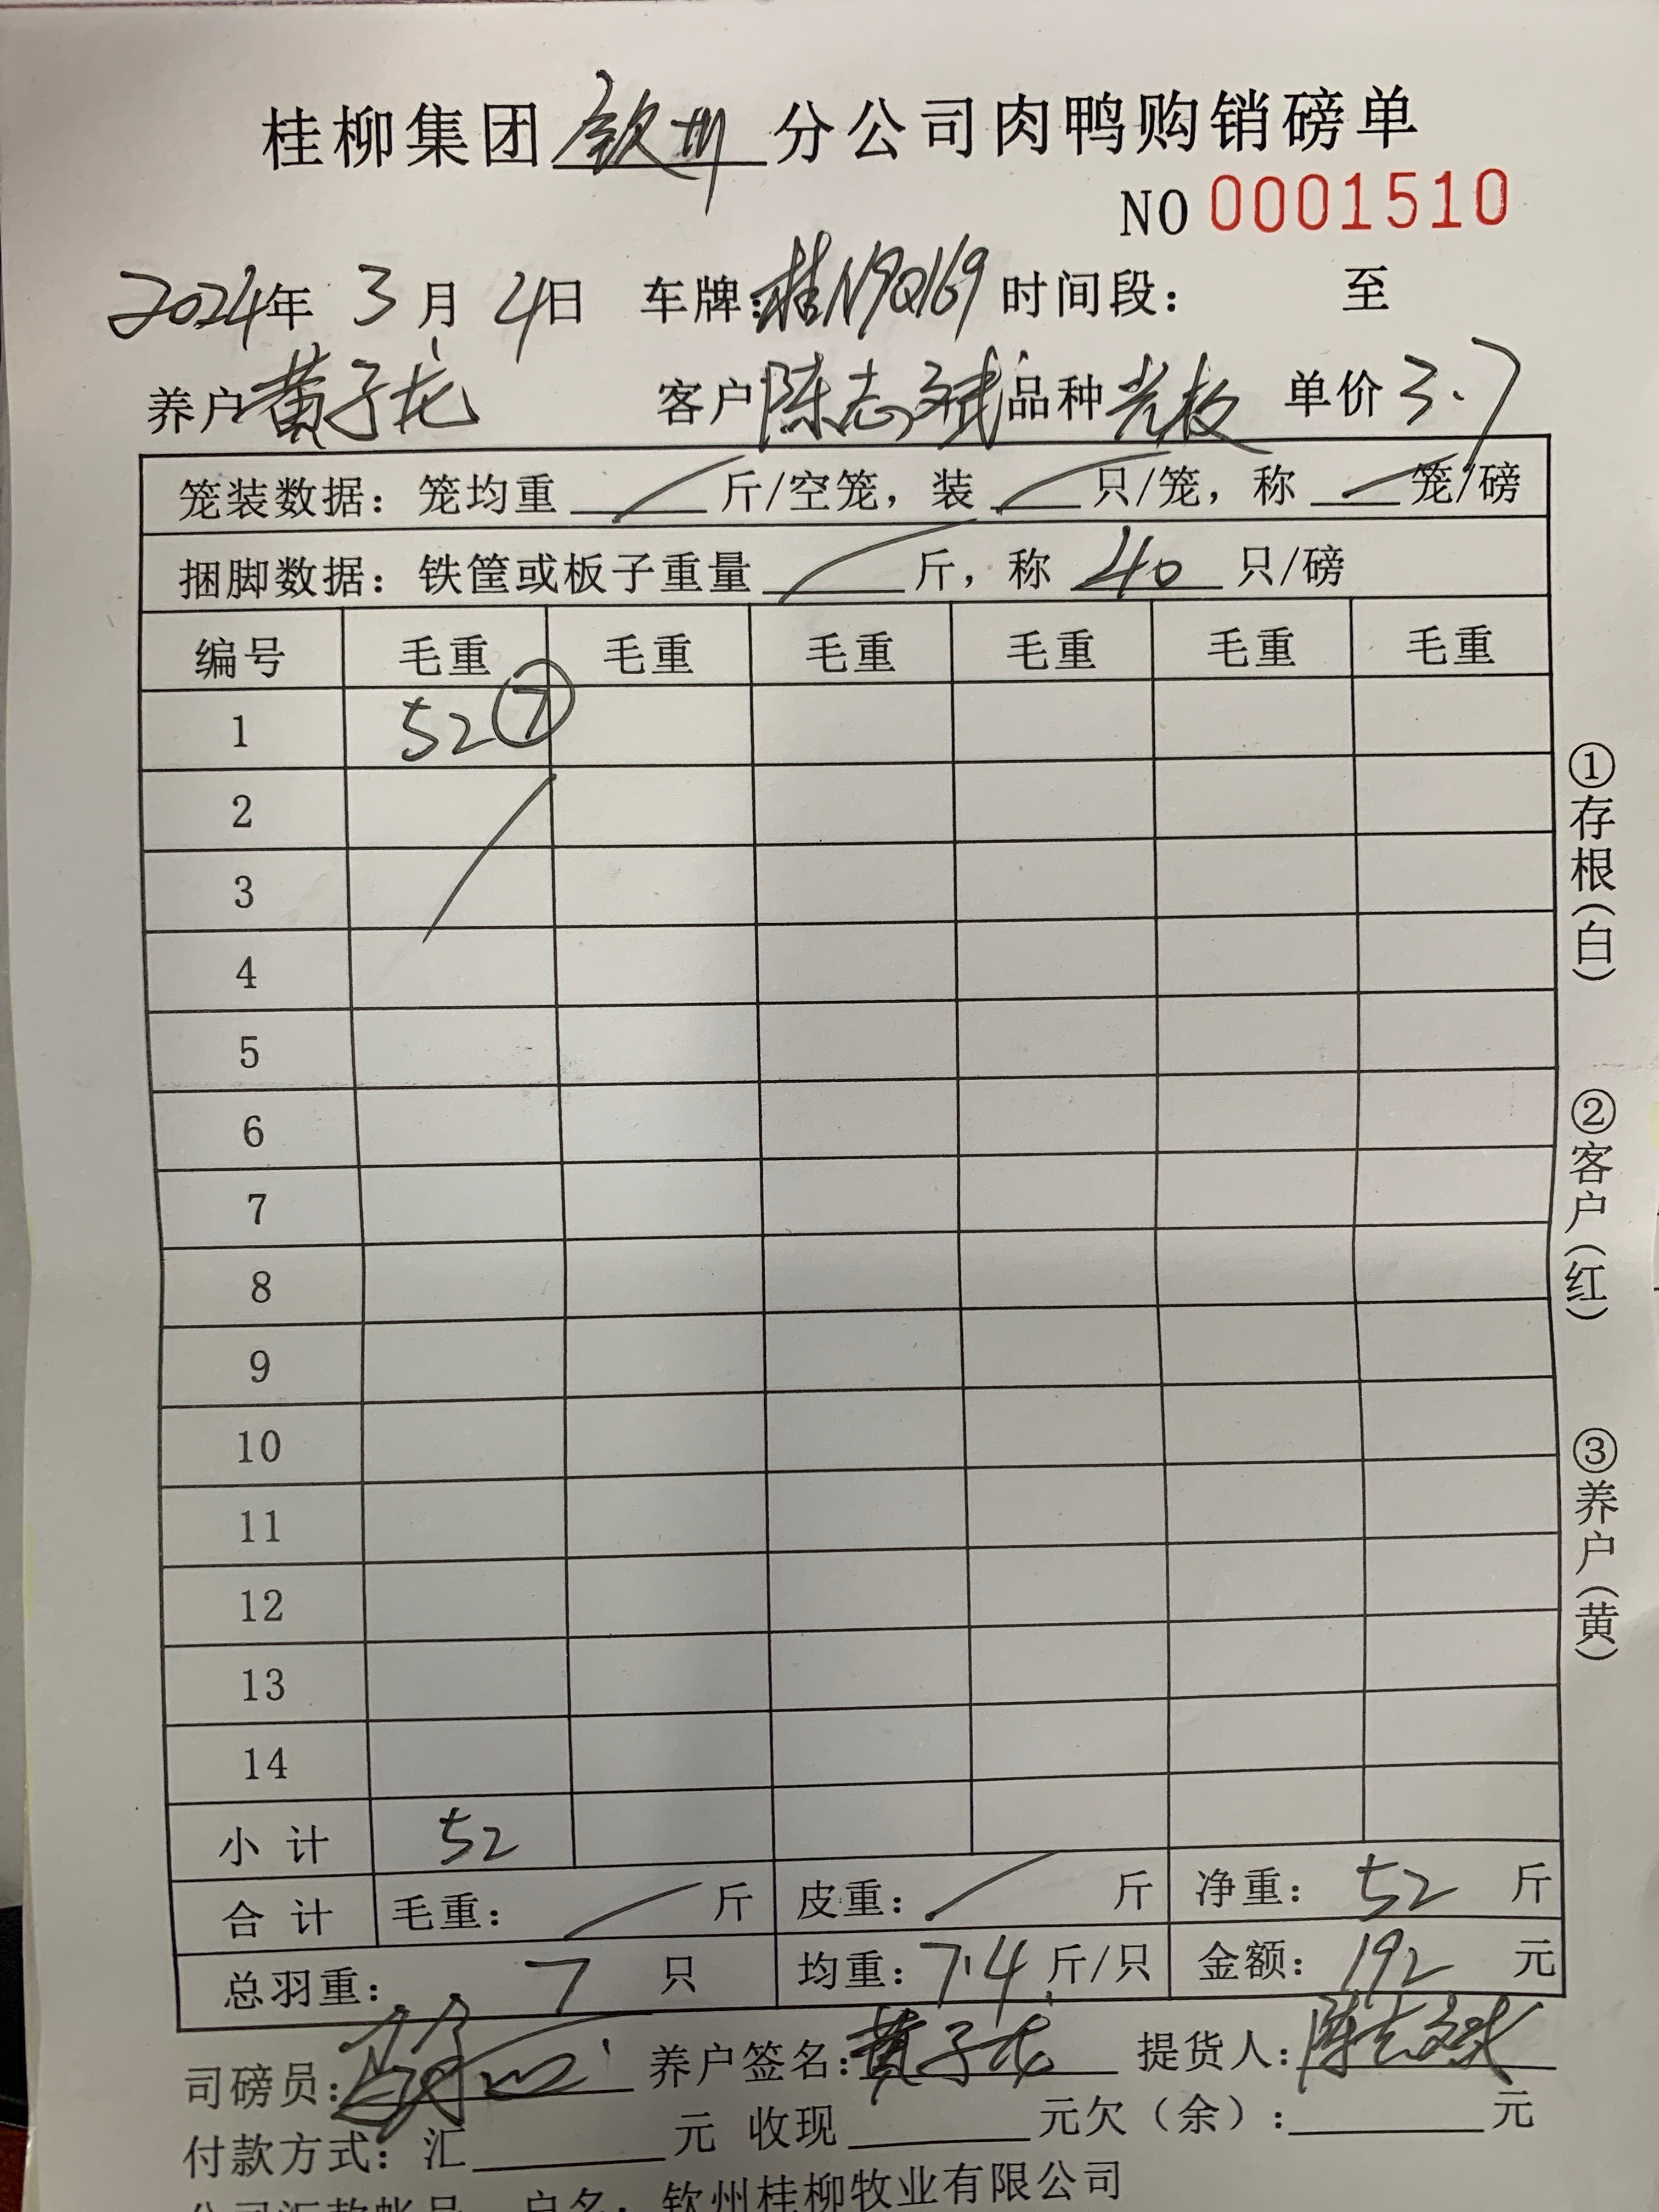 桂柳集团钦州分公司肉鸭购销磅单
NO 0001510
2024年 3月 4日 车牌:桂N9Q169 时间段: 至
养户黄子龙 客户陈志斌 品种 单价3.7
笼装数据: 笼均重 斤/空笼, 装 只/笼, 称 笼/磅
捆脚数据: 铁筐或板子重量 斤, 称 40 只/磅
编号 毛重 毛重 毛重 毛重 毛重 毛重
1 52 ⑦
2
3
4
5
6
7
8
9
10
11
12
13
14
小计 52
合计 毛重: 斤 皮重: 斤 净重: 52 斤
总羽重: 7 只 均重: 7.4 斤/只 金额: 192 元
司磅员: 养户签名:黄子龙 提货人:陈志斌
付款方式: 汇 元 收现 元欠(余): 元
公司汇款帐号 户名: 钦州桂柳牧业有限公司
①存根(白)
②客户(红)
③养户(黄)